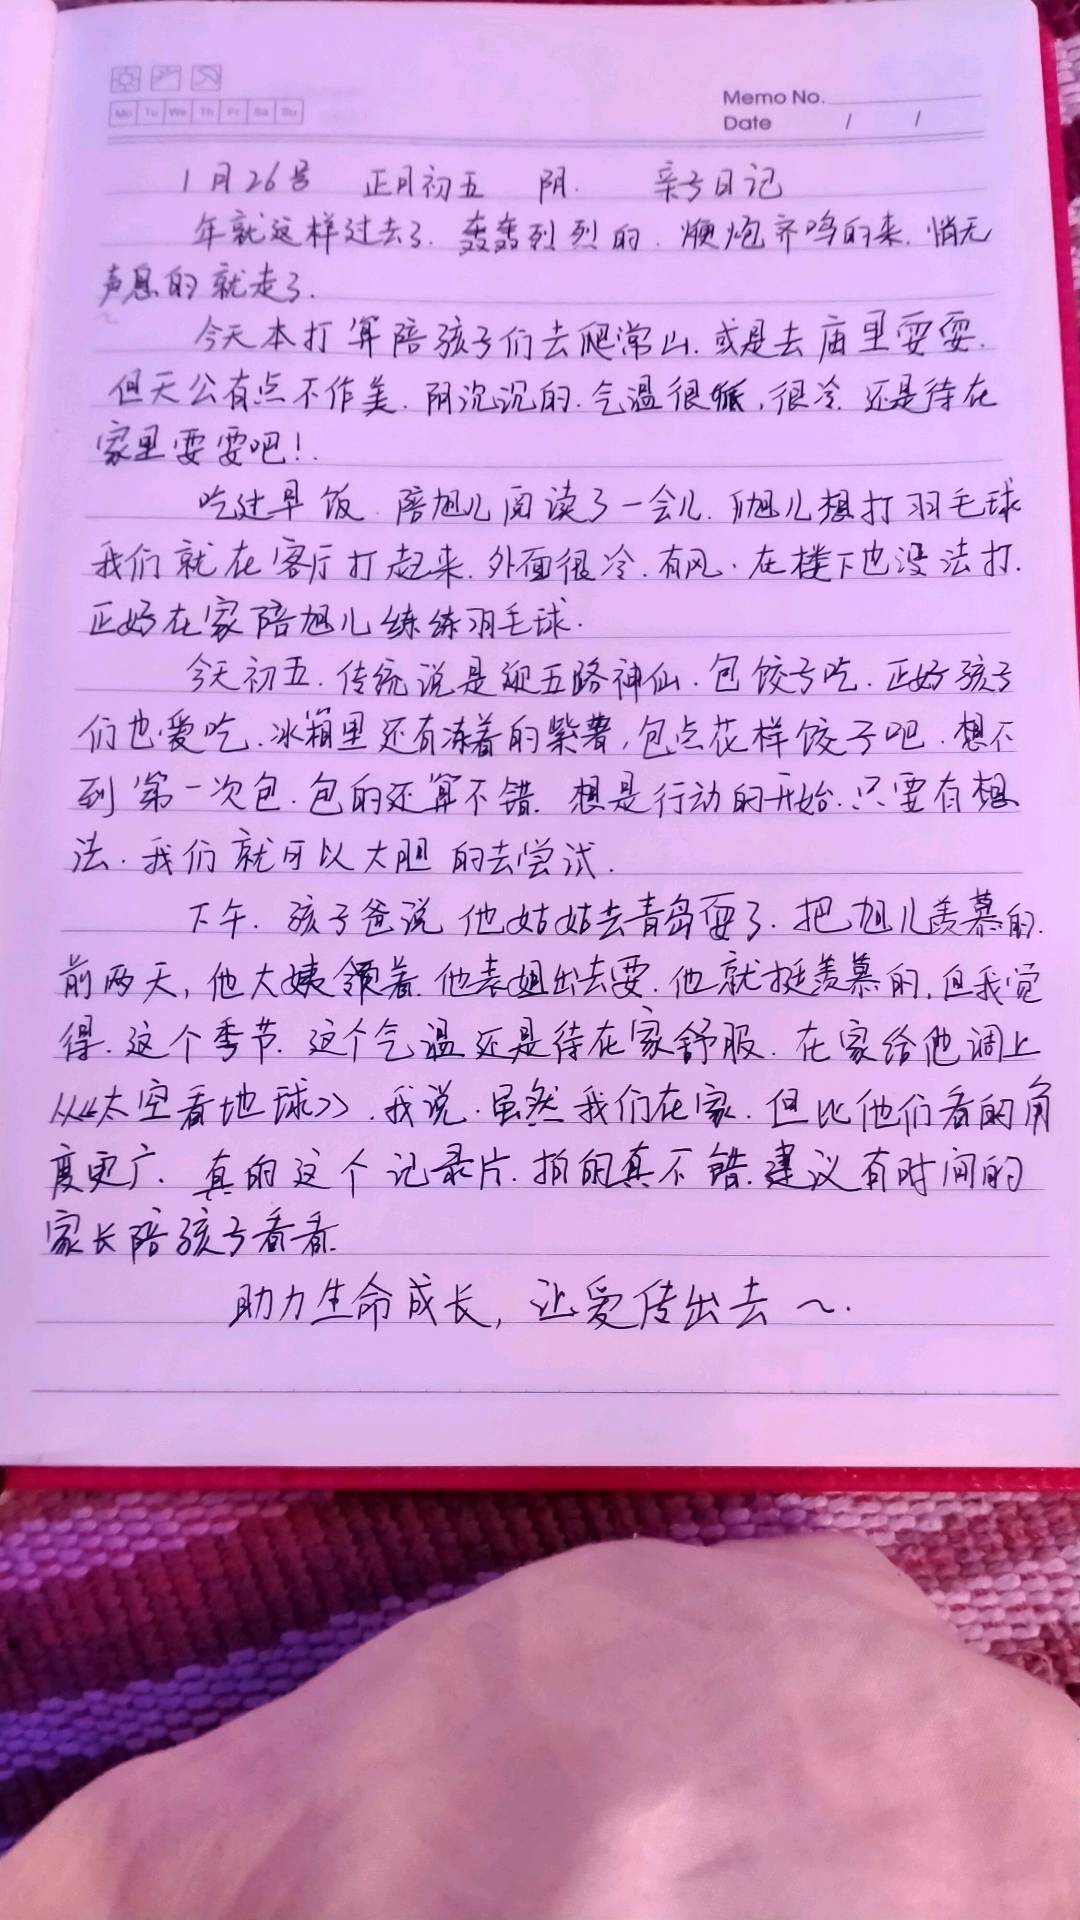 Memo No.
Mo Tu We Th Fr Sa Su
Date / /
1月26号 正月初五 阴. 亲子日记
年就这样过去了.轰轰烈烈的.鞭炮齐鸣的来.悄无
声息的就走了.
今天本打算陪孩子们去爬常山.或是去庙里耍耍.
但天公有点不作美.阴沉沉的.气温很低,很冷.还是待在
家里耍耍吧!.
吃过早饭.陪旭儿阅读了一会儿.旭儿想打羽毛球
我们就在客厅打起来.外面很冷.有风.在楼下也没法打.
正好在家陪旭儿练练羽毛球.
今天初五.传统说是迎五路神仙.包饺子吃.正好孩子
们也爱吃.冰箱里还有冻着的紫薯,包点花样饺子吧.想不
到第一次包.包的还算不错.想是行动的开始.只要有想
法.我们就可以大胆的去尝试.
下午.孩子爸说他姑姑去青岛耍了.把旭儿羡慕的.
前两天,他大姨领着他表姐出去耍.他就挺羡慕的,但我觉
得.这个季节.这个气温还是待在家舒服.在家给他调上
《从《太空看地球》.我说.虽然我们在家.但比他们看的角
度更广.真的这个记录片.拍的真不错.建议有时间的
家长陪孩子看看.
助力生命成长,让爱传出去~.